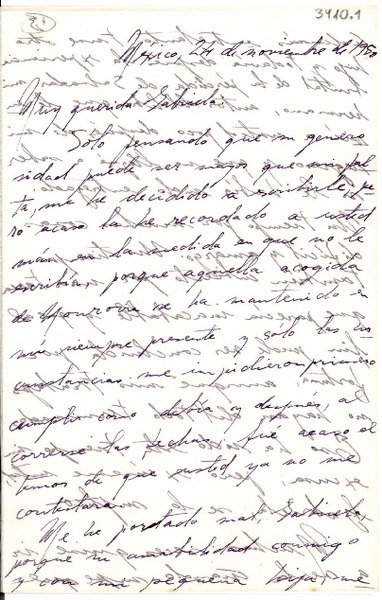 3410.1
México, 24 de noviembre de 1950
Muy querida Gabriela:
Sólo pensando que su genero
sidad puede ser mayor que mi fal
ta, me he decidido a escribirle, pe
ro acaso la he recordado a usted
más en la medida en que no le
escribía, porque aquella acogida
de Monrovia se ha mantenido en
mí siempre presente y sólo las cir
cunstancias me impidieron primero
cumplir como debía y después, al
correrse las fechas, fue acaso el
temor de que usted ya no me
contestara.
Me he portado mal, Gabriela
porque su amabilidad conmigo
y con mi pequeña hija, me